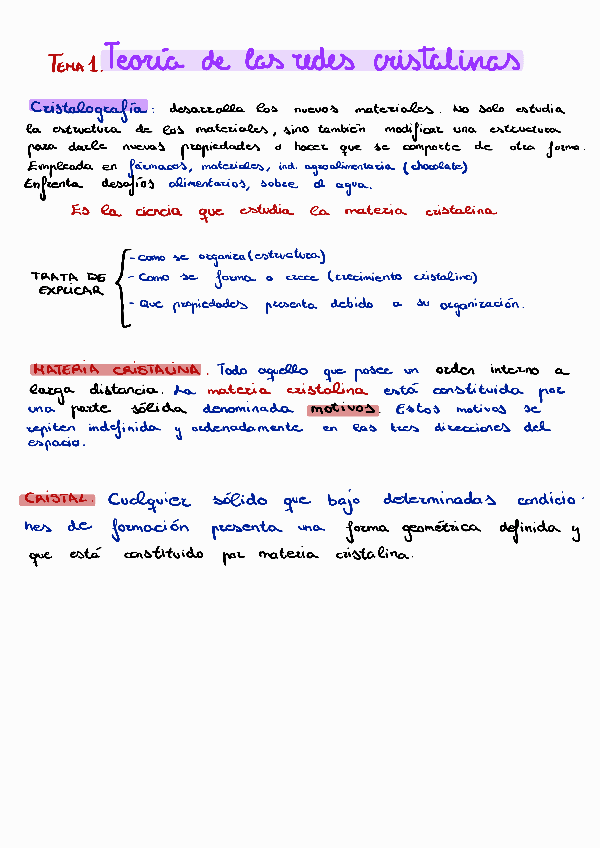 TEMA 1. Teoría de las redes cristalinas
Cristalografía: desarrolla los nuevos materiales. No solo estudia
la estructura de los materiales, sino también modificar una estructura
para darle nuevas propiedades o hacer que se comporte de otra forma.
Empleada en fármacos, materiales, ind. agroalimentaria (chocolate)
Enfrenta desafíos alimentarios, sobre el agua.
Es la ciencia que estudia la materia cristalina
TRATA DE EXPLICAR
- Como se organiza (estructura)
- Como se forma o crece (crecimiento cristalino)
- Que propiedades presenta debido a su organización.
MATERIA CRISTALINA. Todo aquello que posee un orden interno a
larga distancia. La materia cristalina está constituida por
una parte sólida denominada motivos. Estos motivos se
repiten indefinida y ordenadamente en las tres direcciones del
espacio.
CRISTAL. Cualquier sólido que bajo determinadas condicio-
nes de formación presenta una forma geométrica definida y
que está constituido por materia cristalina.